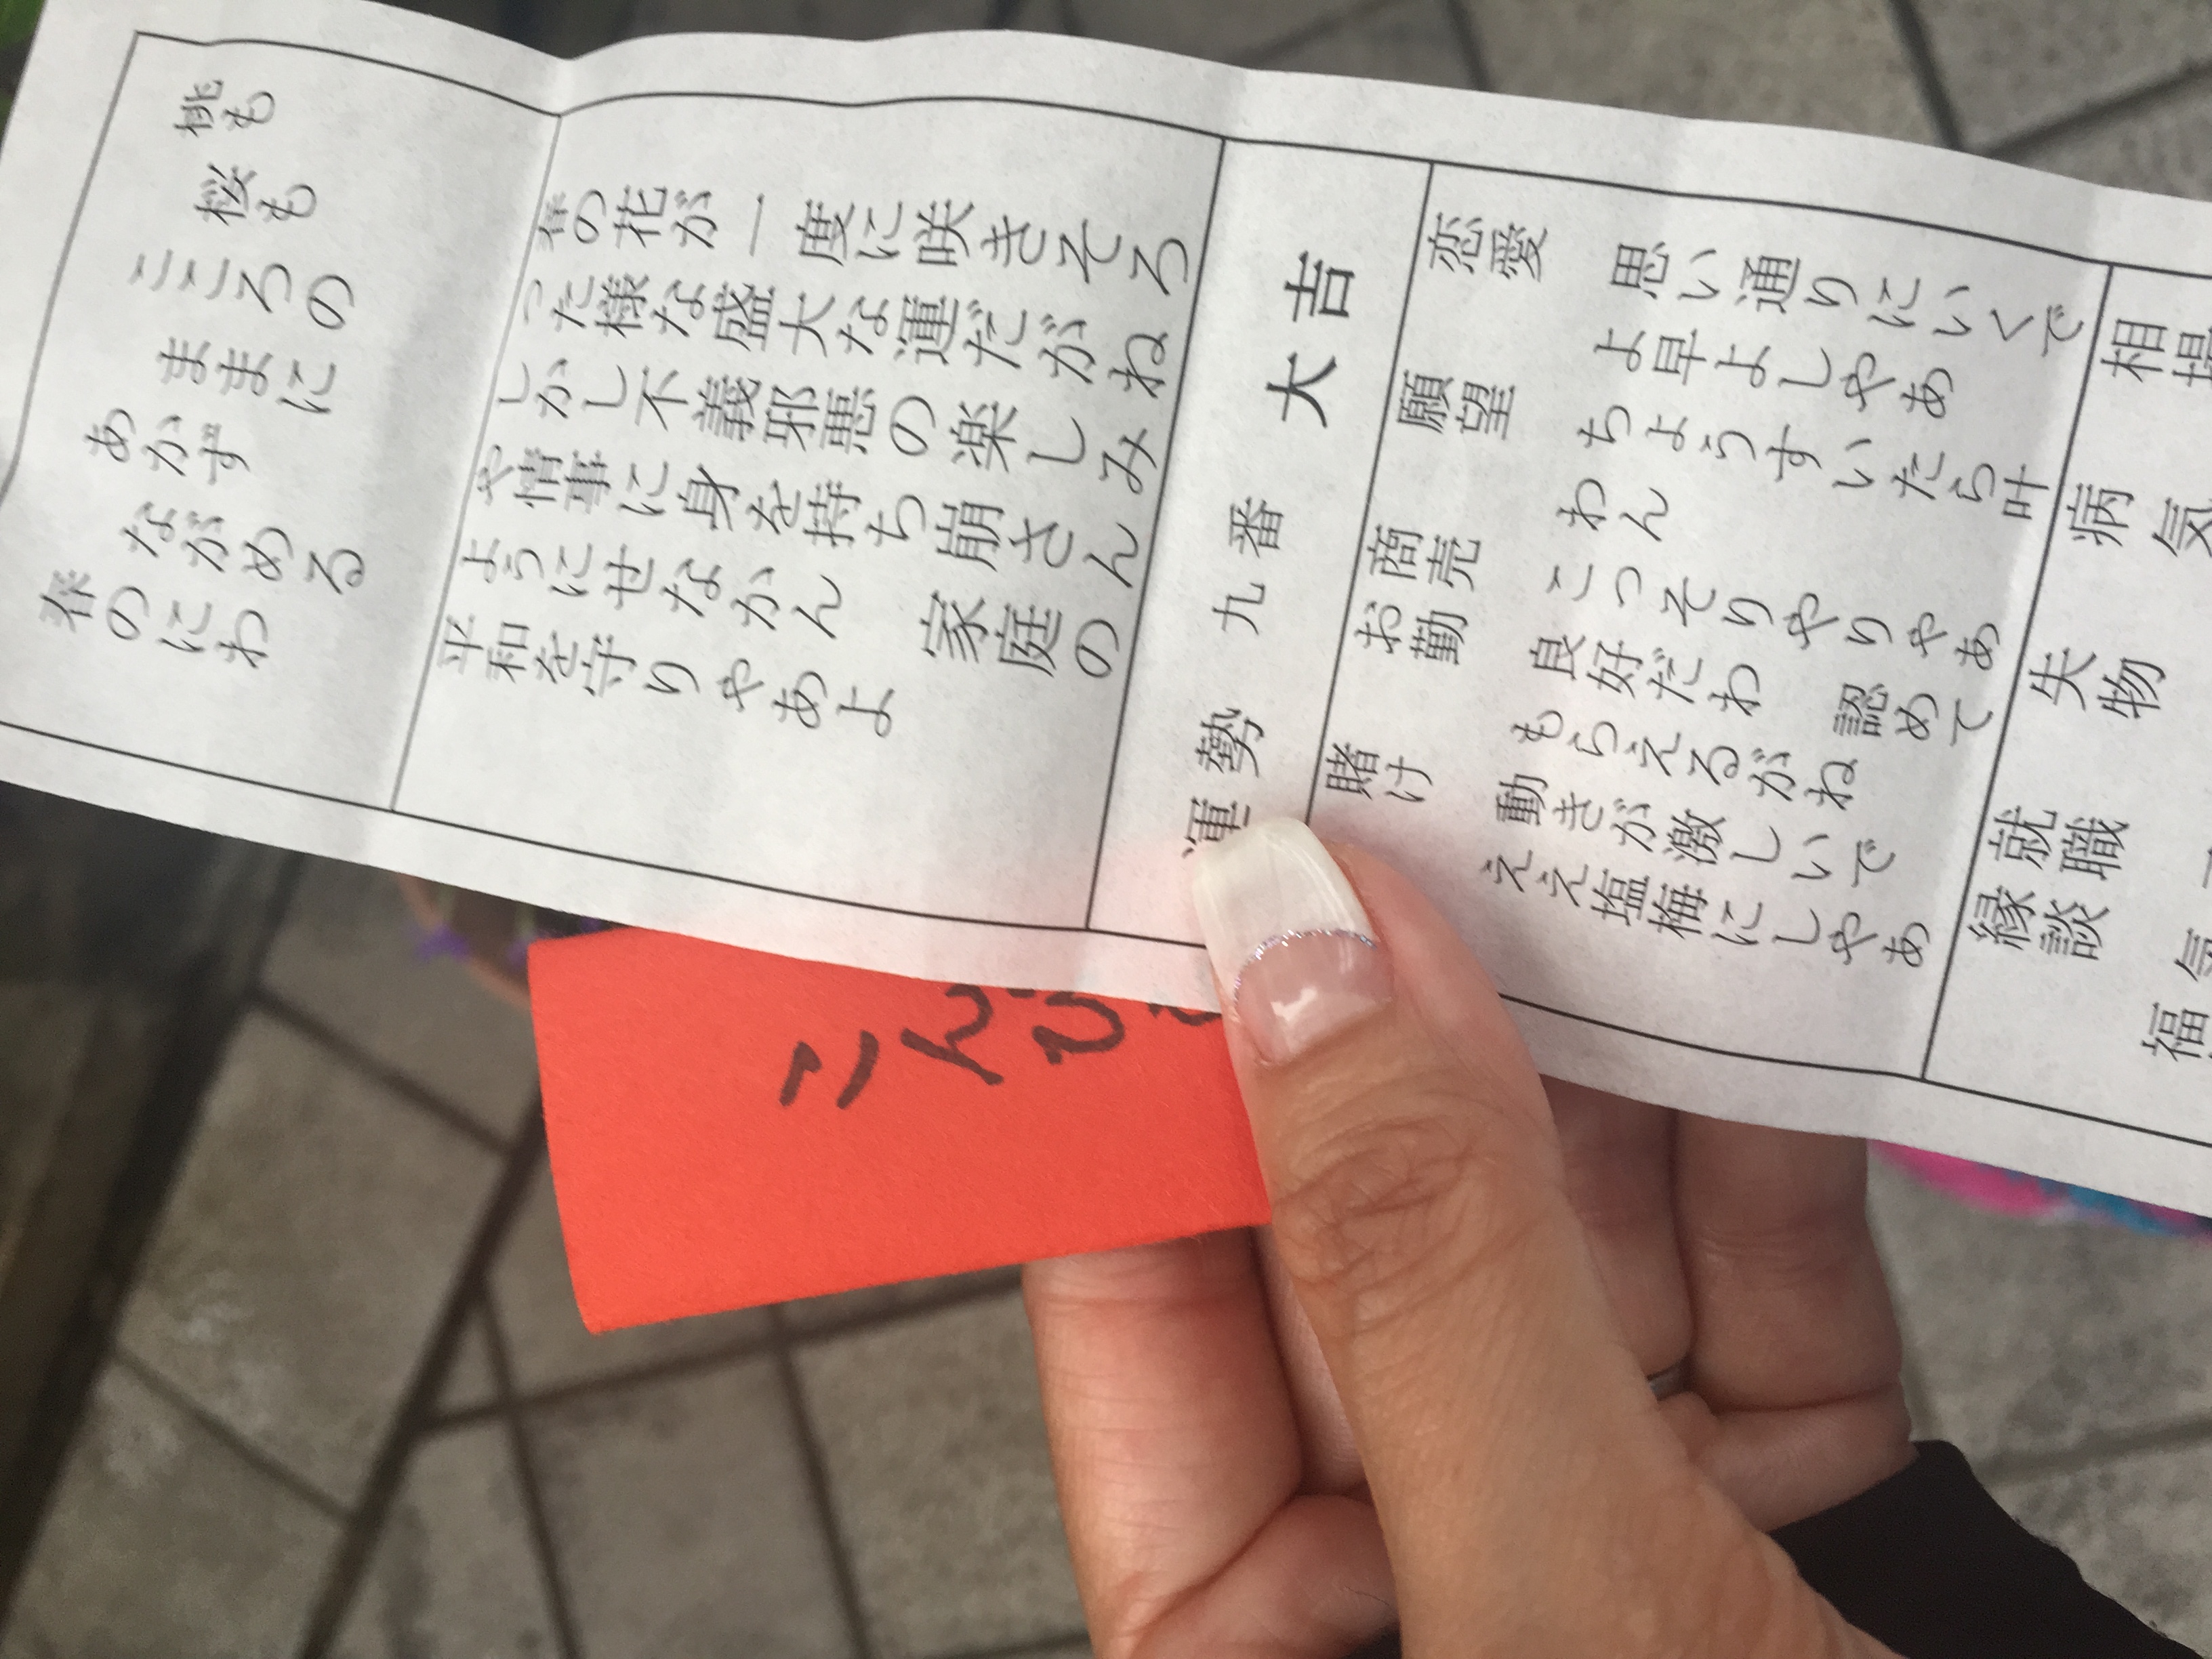 桃も
桜も
こころの
ままに
あかず
ながめる
春のにわ
春の花が一度に咲きそろ
った様な盛大な運だがね
しかし不義邪悪の楽しみ
や情事に身を持ち崩さん
ようにせなかん 家庭の
平和を守りやあよ
運勢 九番 大吉
恋愛 思い通りにいくで
よ早よしやあ
願望 ちょうすいたら叶
わん
商売 こっそりやりやあ
お勤 良好だわ 認めて
もらえるがね
賭け 動きが激しいで
ええ塩梅にしやあ
相場
病気
失物
就職
縁談